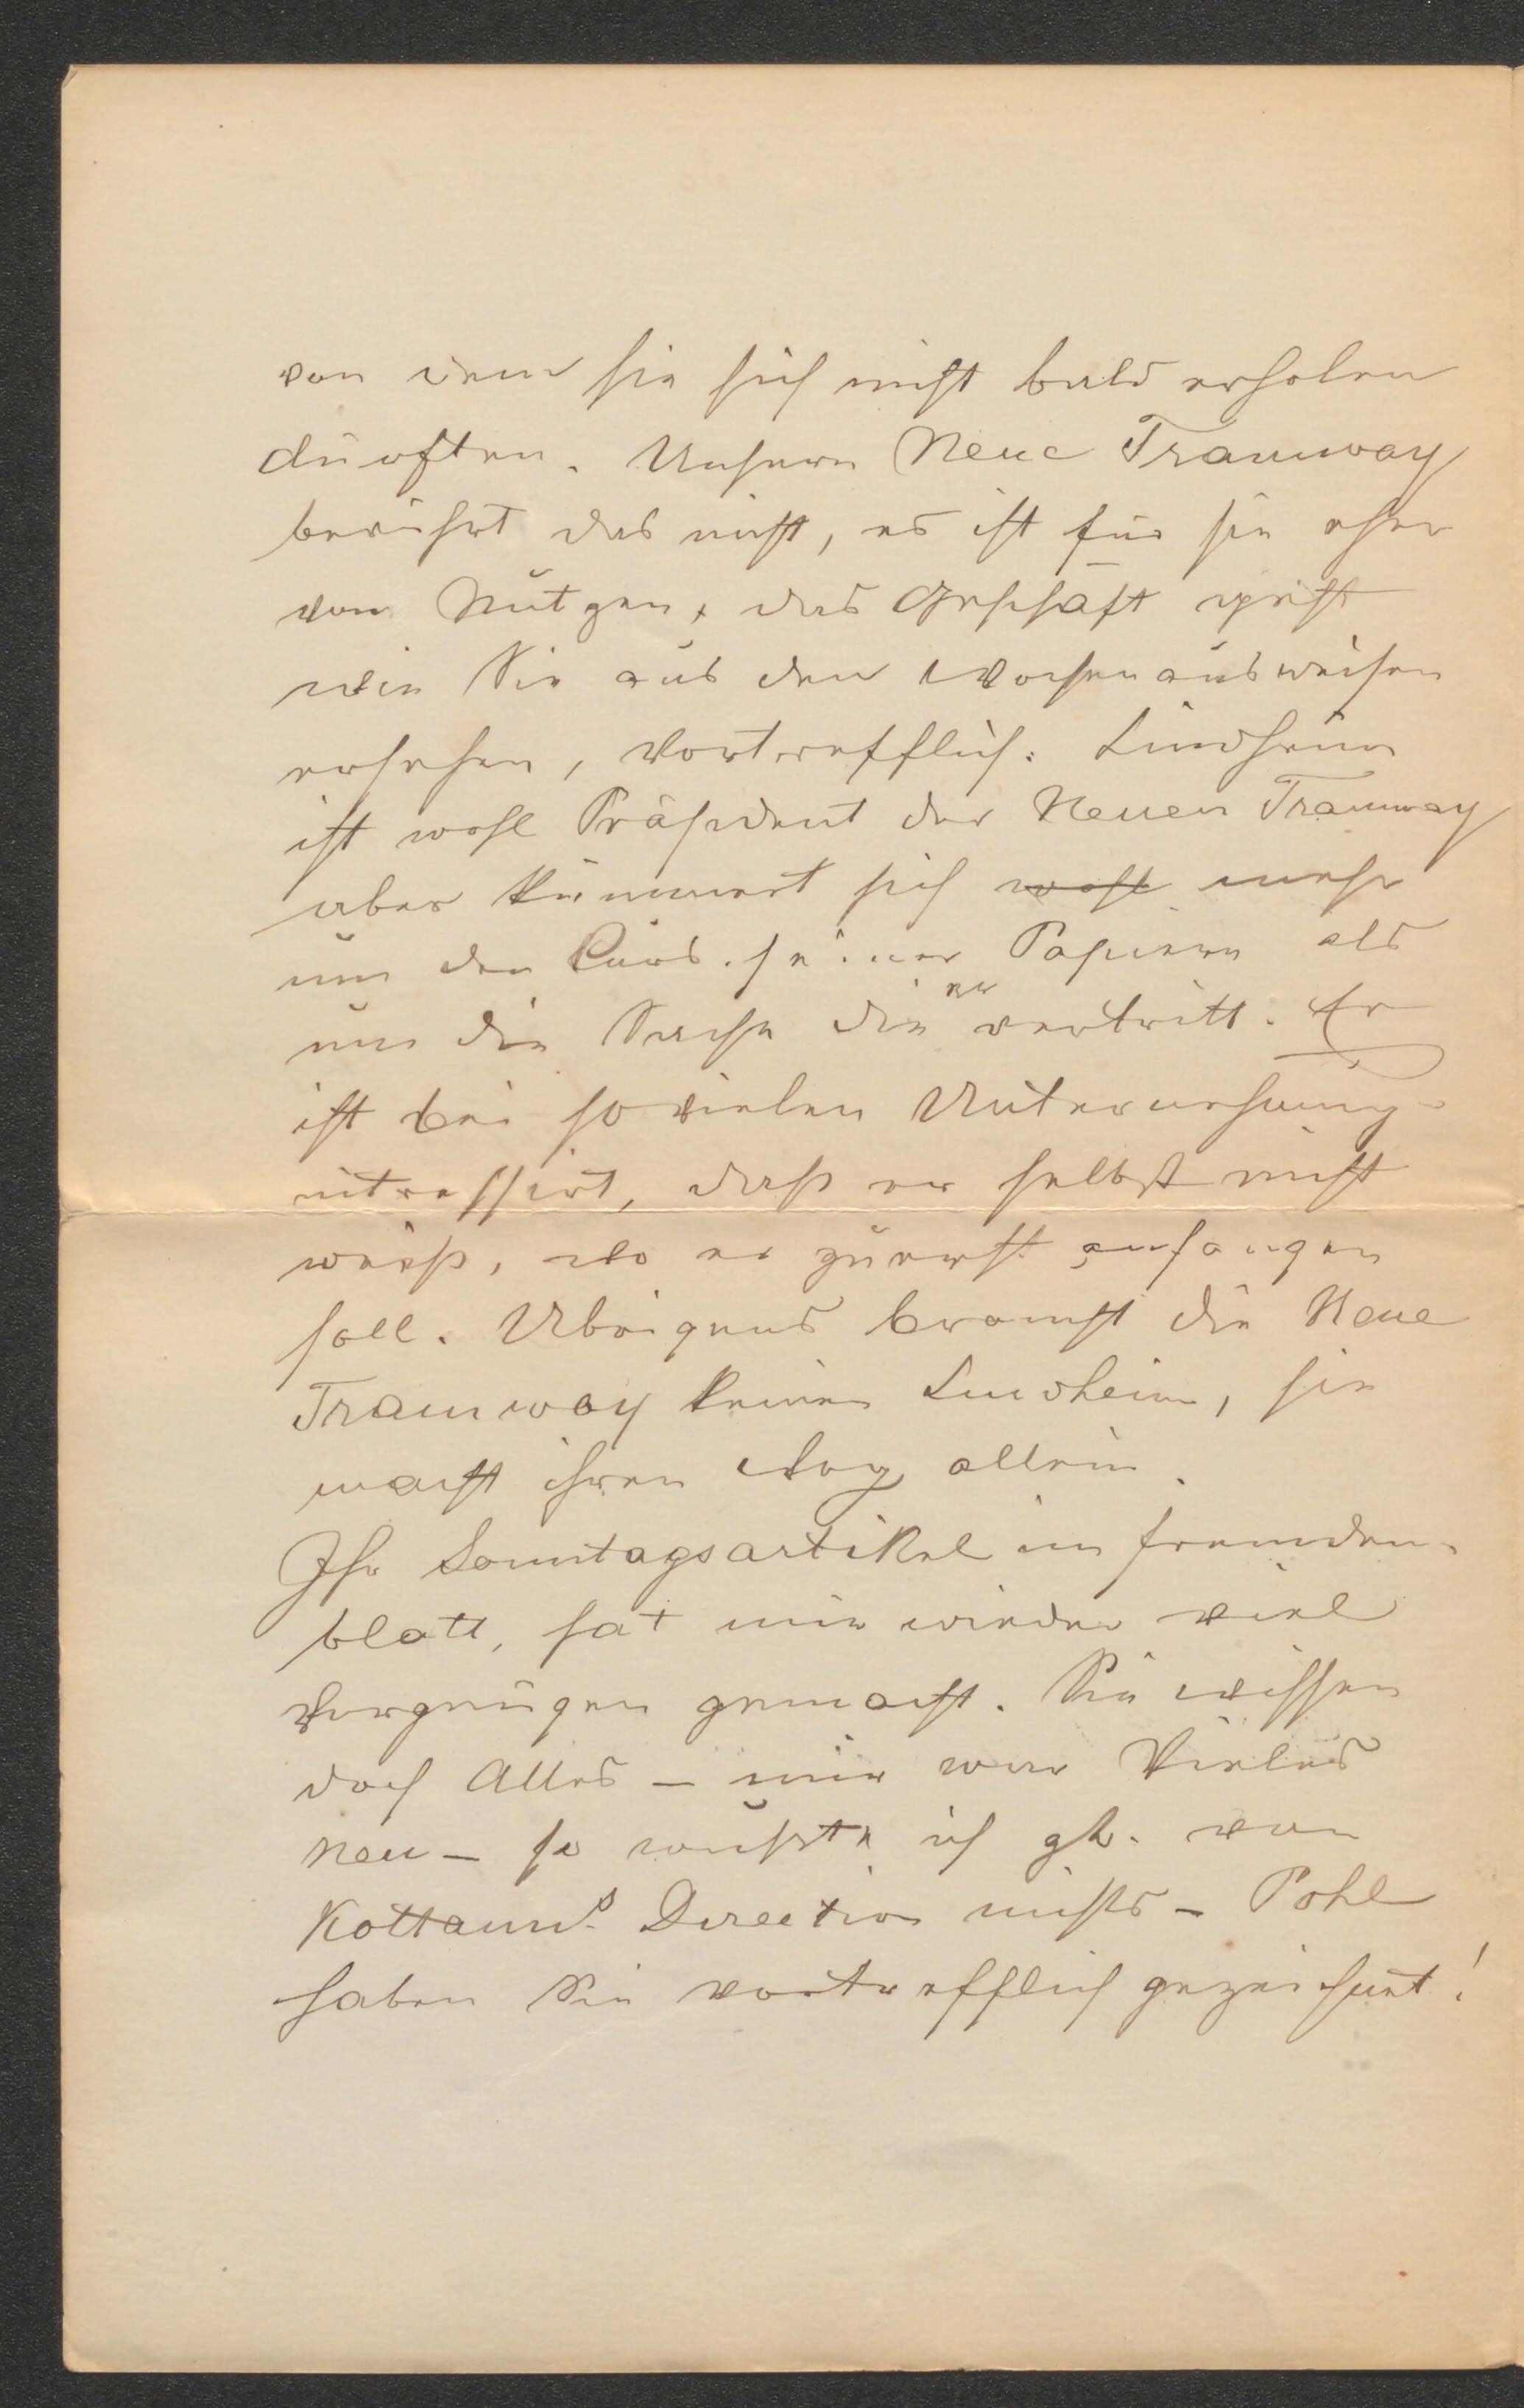 von dem sie sich nicht bald erholen
dürften. Unsere Neue Tramway
berührt das nicht, es ist für sie eher
von Nutzen, das Geschäft geht
wie Sie aus den Wochenausweisen
ersehen, vortrefflich. Lindheim
ist wohl Präsident der Neuen Tramway
aber kümmert sich wohl mehr
um den Curs seiner Papiere als
um die Sache die er vertritt. Er
ist bei so vielen Unternehmung-
intressirt, dass er selbst nicht
weiß, wo er zuerst anfangen
soll. Übrigens braucht die Neue
Tramway keinen Lindheim, sie
macht ihren Weg allein.
Ihr Sonntagsartikel im Fremden-
blatt, hat mir wieder viel
Vergnügen gemacht. Sie wissen
doch Alles – mir war Vieles
neu – so wußte ich von
Kottaun's Direction nichts – Pohl
haben Sie vortrefflich gezeichnet!